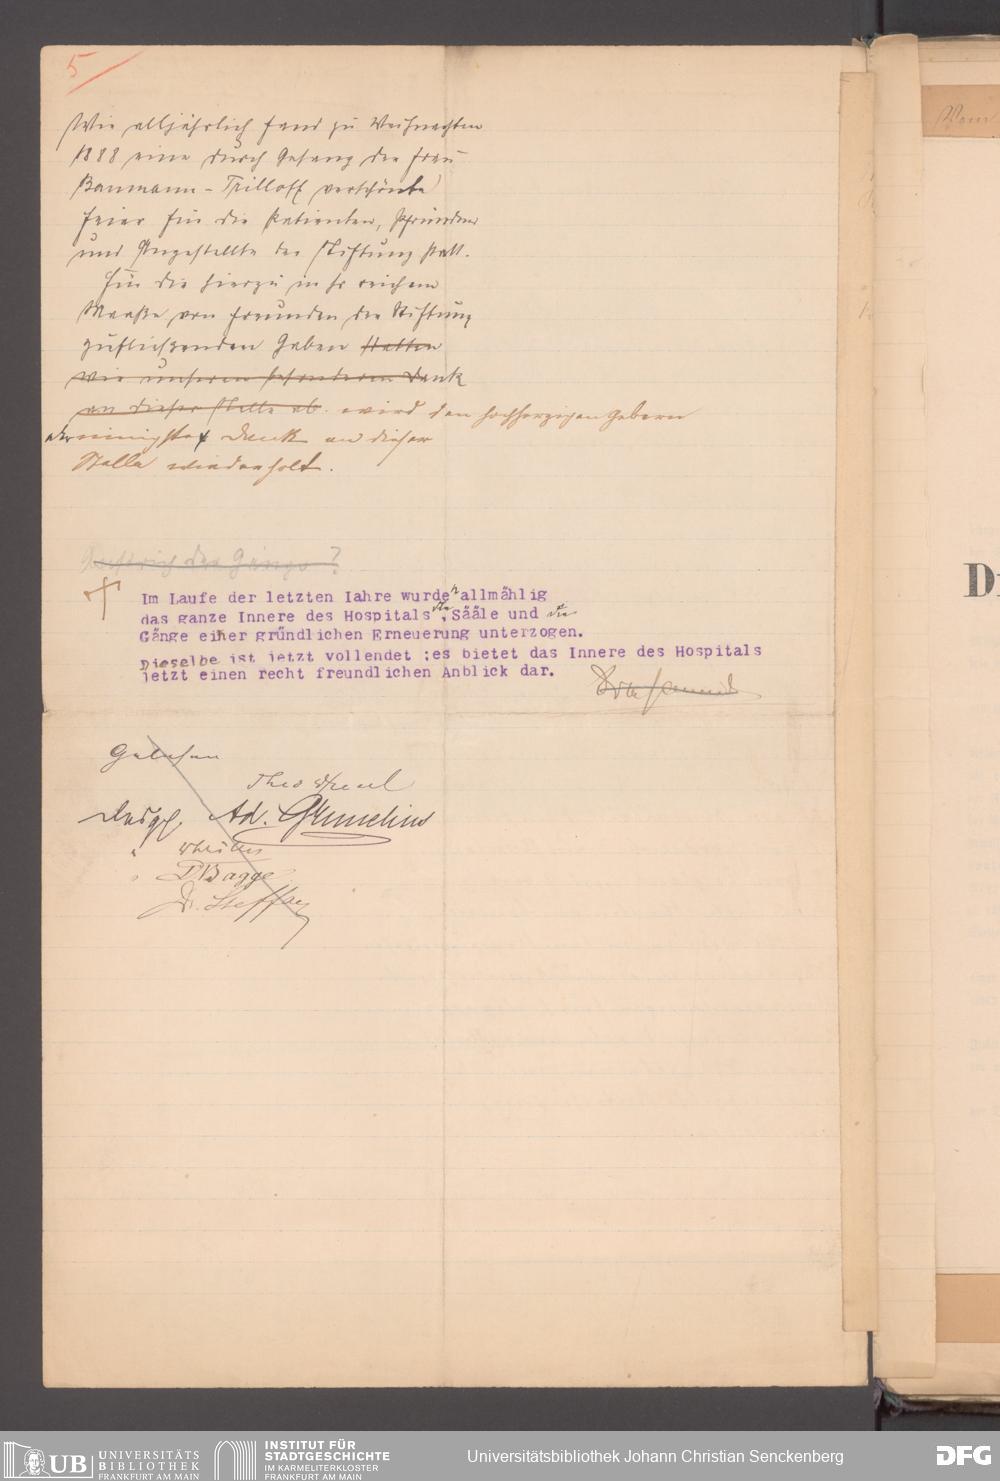 5
Wie alljährlich fand zu Weihnachten
1888 eine durch Gesang der Frau
Baumann-Trilloff verschönte
Feier für die Patienten, Pfründner
und Angestellte der Stiftung statt.
Für die hierzu in so reichem
Maaße von Freunden der Stiftung
zufließenden Gaben statten
wir unseren besonderen Dank
an dieser Stelle ab. wird den hochherzigen Gebern
Dank an dieser
Stelle wiederholt.
der Gänge?
Im Laufe der letzten Iahre wurden allmählig
das ganze Innere des Hospitals, die Sääle und die
Gänge einer gründlichen Erneuerung unterzogen.
Dieselbe ist jetzt vollendet ;es bietet das Innere des Hospitals
jetzt einen recht freundlichen Anblick dar.
Gelesen
Theo
Desgl. Ad. Gmelin
"
" D Bagge
Dr. Steffan
Vom
D
UB UNIVERSITÄTS
BIBLIOTHEK
FRANKFURT AM MAIN
INSTITUT FÜR
STADTGESCHICHTE
IM KARMELITERKLOSTER
FRANKFURT AM MAIN
Universitätsbibliothek Johann Christian Senckenberg
DFG